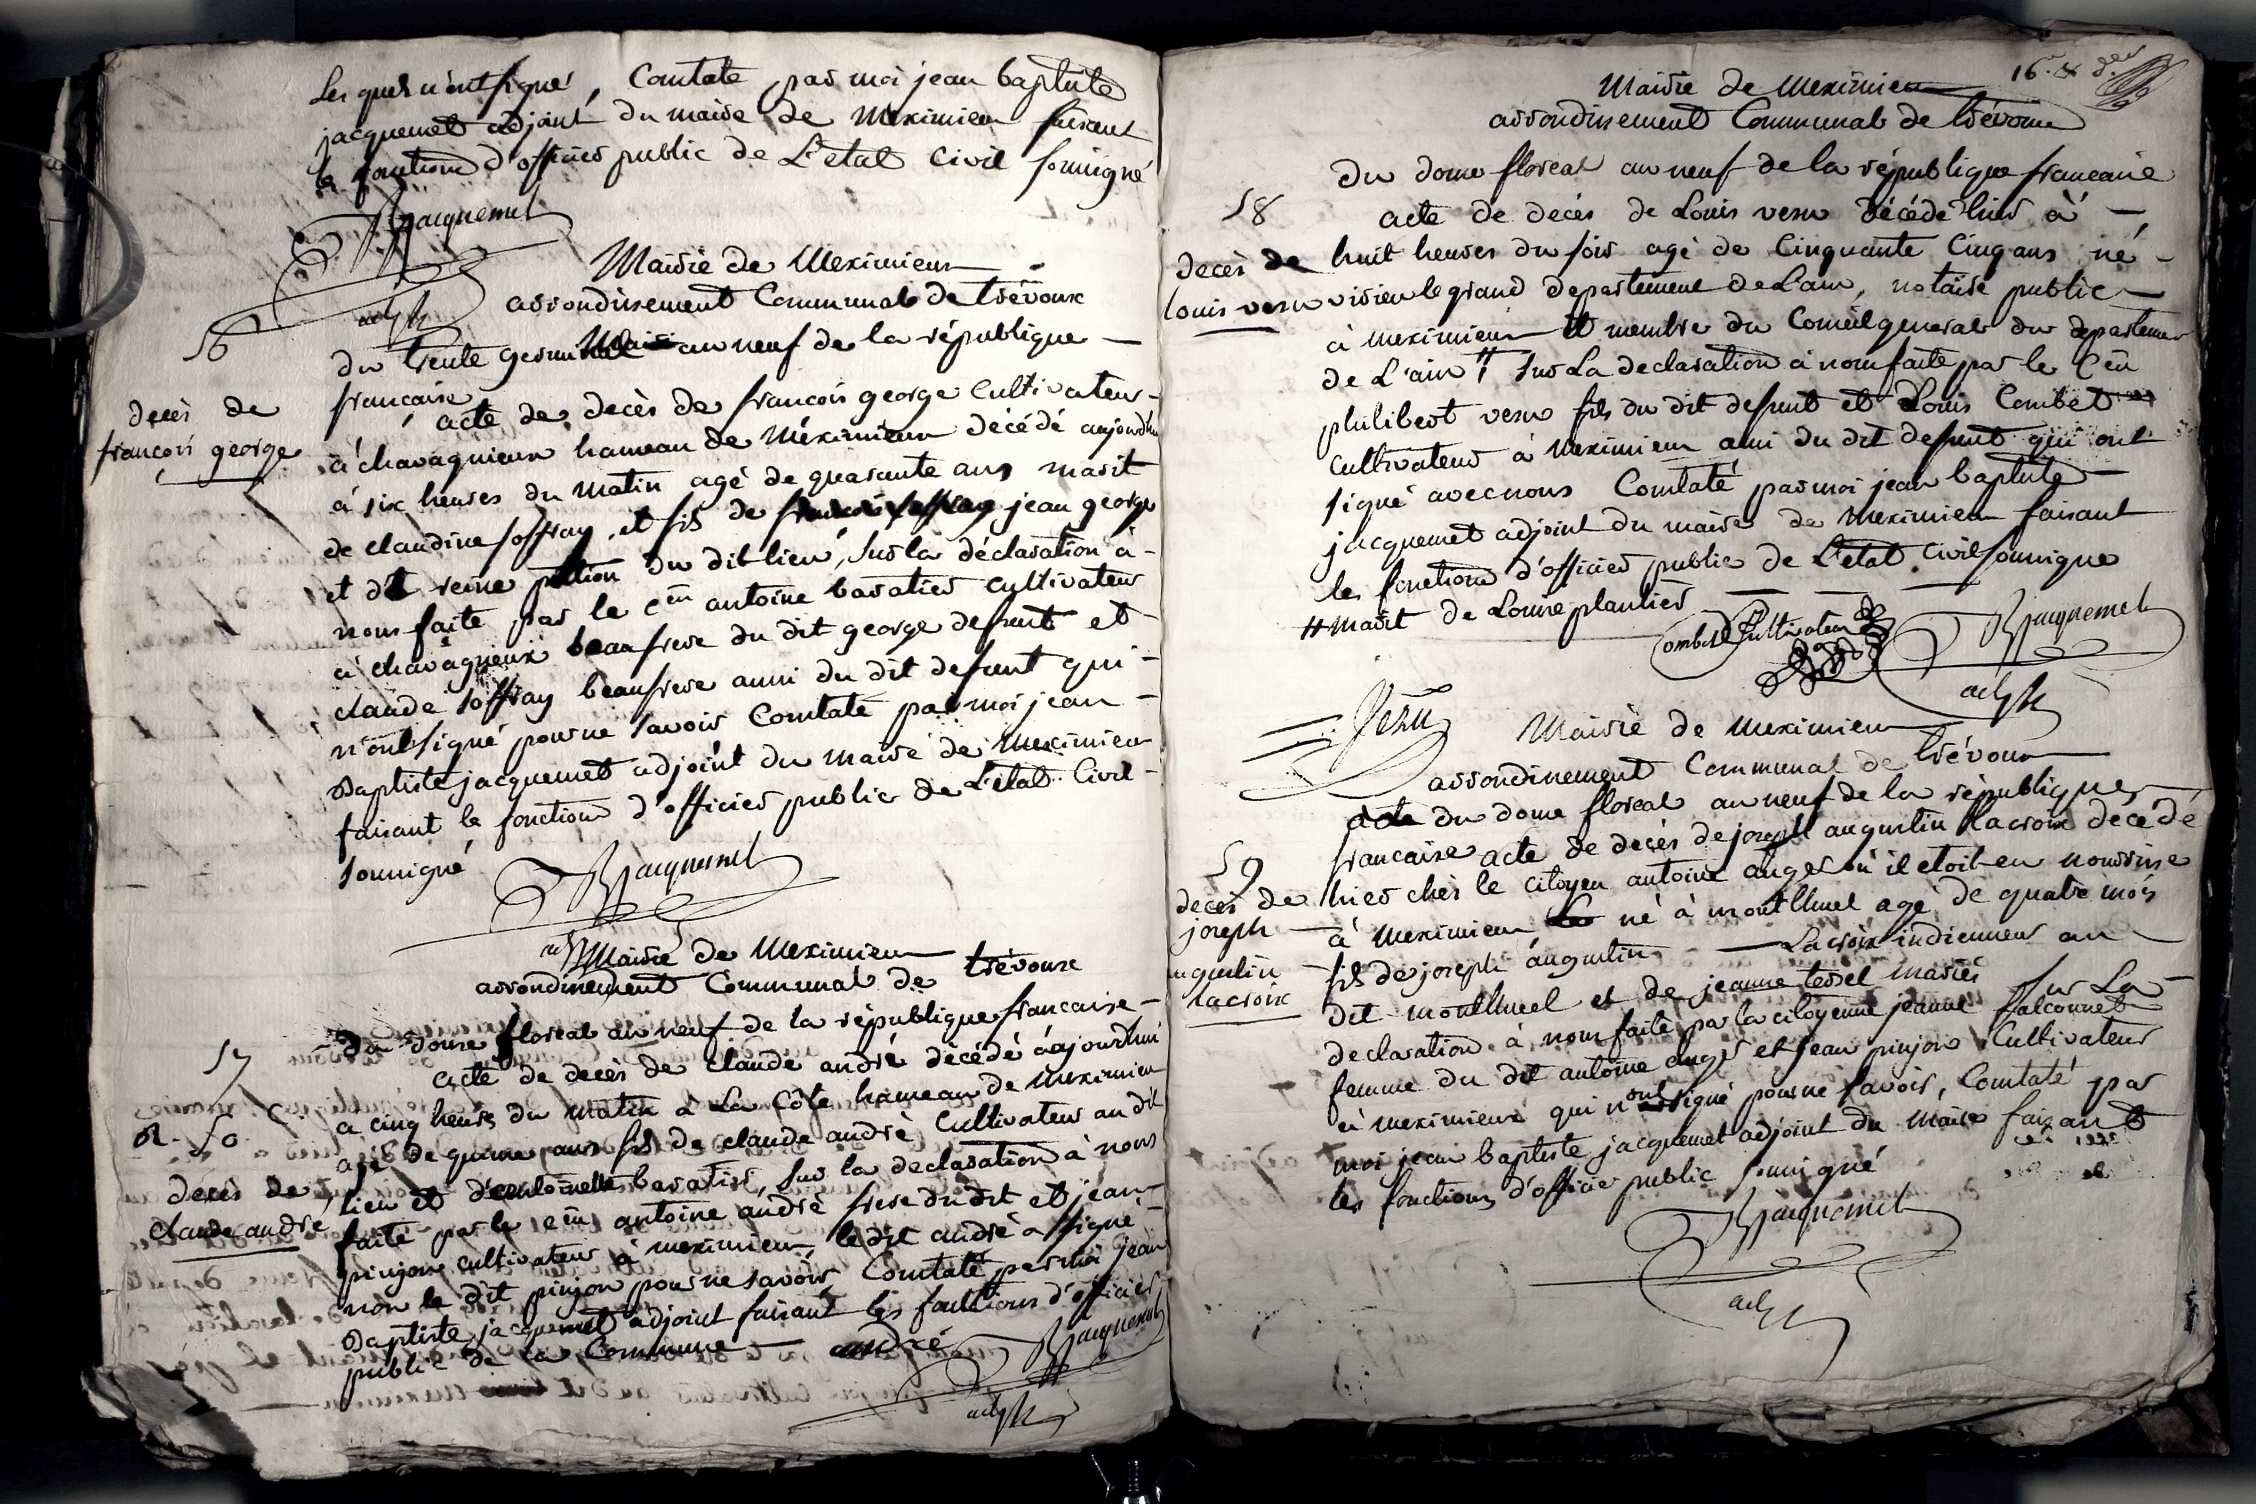 Lesquels n'ont signé, Constaté par moi jean baptiste
jacquemet adjoint du maire de Meximieux faisant
les fonctions d'officier public de L'etat Civil soussigné
Jacquemet
adjt
Mairie de Meximieux
arrondissement Communal de trévoux
56
du trente germinal an neuf de la république
francaise
decès de
françois george
acte de decès de francois george Cultivateur
à chavagnieux hameau de Méximieux décédé aujourdhui
à six heures du matin agé de quarante ans marit
de claudine soffray, et fils de jean george
et de reine pition du dit lieu, sur la déclaration à
nous faite par le cen antoine baratier cultivateur
à chavagnieux beaufrere du dit george defunt et
claude soffray beaufrere aussi du dit defunt qui
n'ont signé pour ne savoir Constaté par moi jean
Baptiste jacquemet adjoint du maire de Meximieux
faisant les fonctions d'officier public de L'etat Civil
soussigné
Jacquemet
adjt
Mairie de Meximieux
arrondissement Communal de trévoux
57
du douze floreal an neuf de la république francaise
acte de decès de claude andré décédé aujourdhui
a cinq heures du matin à La Côte hameau de Meximieux
R. 50.
decès de
claude andre
agé de quinze ans fils de claude andrè Cultivateur au dit
lieu et d'entoinette baratier, sur la declaration à nous
faite par le cen antoine andrè frere du dit et jean
pinjon cultivateur à meximieux, le dit andrè a signé
non le dit pinjon pour ne savoir Constaté par moi jean
Baptiste jacquemet adjoint faisant les fonctions d'officier
public de la Commune
andré
Jacquemet
adjt
16
Mairie de Meximieux
arrondissement Communal de trévoux
du douze floreal an neuf de la république francaise
58
acte de decès de Louis vezu décédé hier à
decès de
louis vezu
huit heures du soir agé de Cinquante Cinq ans né
virieu le grand departement de L'ain, notaire public
à meximieux et membre du Conseil general du departement
de L'ain # sur La declaration à nous faite par le Cen
philibert vezu fils du dit defunt et Louis Combet
cultivateur à Meximieux ami du dit defunt qui ont
signé avec nous Constaté par moi jean baptiste
jacquemet adjoint du maire de Meximieux faisant
les fonctions d'officier public de L'etat Civil soussigne
# marit de Louise plantier
Combet Cultivateur
Jacquemet
adjt
Vezu
Mairie de Meximieux
arrondissement Communal de trévoux
acte du douze floreal an neuf de la république
59
francaise acte de decès de joseph augustin Lacroix decedé
decès de
joseph
augustin
Lacroix
hier chès le citoyen antoine auger où il etoit en nourrise
à Meximieux né à montlluel agé de quatre mois
fils de joseph augustin Lacroix indienneur au
dit montlluel et de jeanne tessel mariés sur La
declaration à nous faite par la citoyenne jeanne falconnet
femme du dit antoine auger et jean pinjon Cultivateur
à meximieux qui n'ont signé pour ne savoir, Constaté par
moi jean baptiste jacquemet adjoint du maire faisant
les fonctions d'officier public soussigné
Jacquemet
adjt